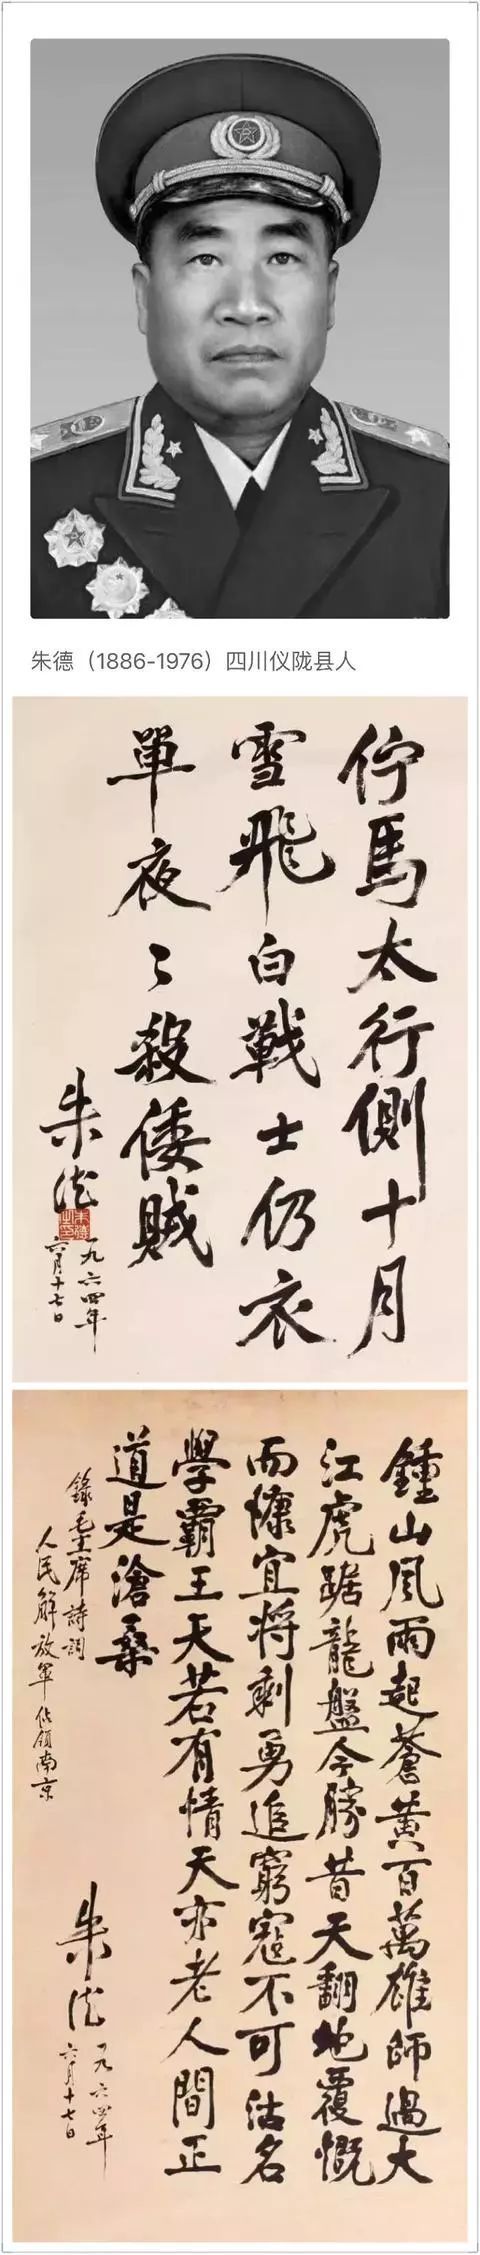 朱德（1886-1976）四川仪陇县人
佇馬太行側十月
雪飛白戰士仍衣
單夜々殺倭賊
朱德
一九六四年
六月十七日
鍾山风雨起蒼黃百萬雄師過大
江虎踞龍盤今勝昔天翻地覆慨
而慷宜将剩勇追窮寇不可沽名
學霸王天若有情天亦老人間正
道是滄桑
錄毛主席詩詞
人民解放軍佔領南京
朱德
一九六四年
六月十七日